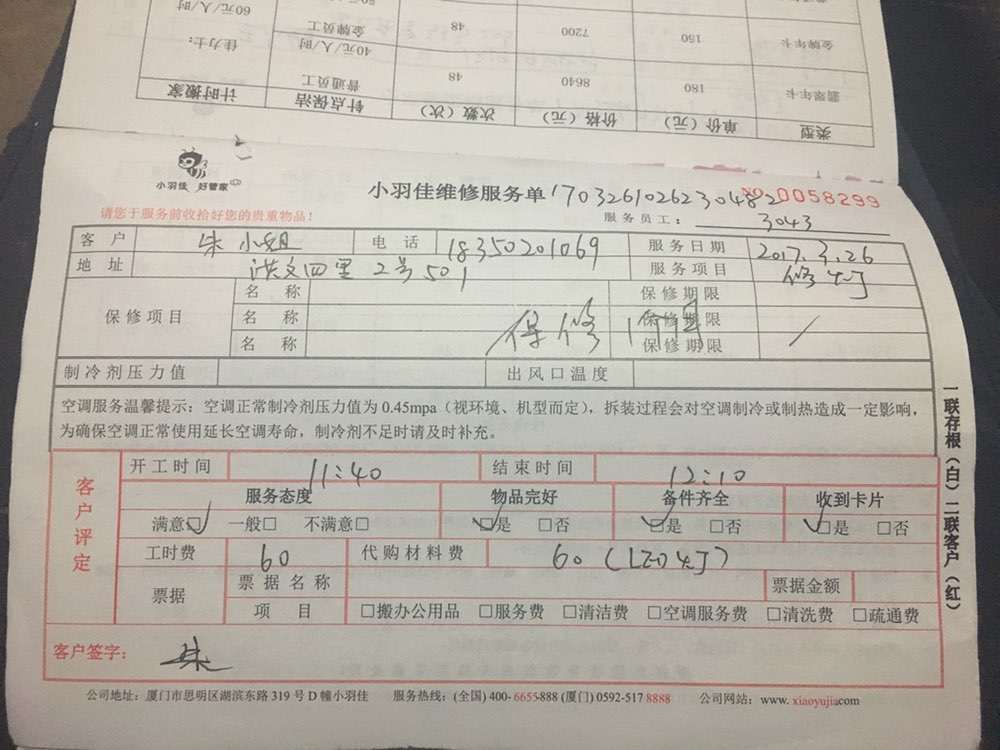 类型 单价（元） 价格（元） 次数（次） 针点保洁 计时搬家
翡翠年卡 180 8640 48 普通员工 40元/人/时 佳力士：
金牌年卡 150 7200 48 金牌员工 60元/人/时
小羽佳 好管家
小羽佳维修服务单 1703261026230482 NO 0058299
请您于服务前收拾好您的贵重物品！ 服务员工： 3043
客户 朱小姐 电话 18350201069 服务日期 2017.3.26
地址 洪文四里2号501 服务项目 修灯
保修项目 名称 保修期限
名称 保修1个月 保修期限 /
名称 保修期限
制冷剂压力值 出风口温度
空调服务温馨提示：空调正常制冷剂压力值为 0.45mpa（视环境、机型而定），拆装过程会对空调制冷或制热造成一定影响，
为确保空调正常使用延长空调寿命，制冷剂不足时请及时补充。
客户评定 开工时间 11:40 结束时间 12:10
服务态度 物品完好 备件齐全 收到卡片
满意☑ 一般□ 不满意□ ☑是 □否 ☑是 □否 ☑是 □否
工时费 60 代购材料费 60（LED灯）
票据 票据名称 票据金额
项目 □搬办公用品 □服务费 □清洁费 □空调服务费 □清洗费 □疏通费
客户签字： 朱
公司地址：厦门市思明区湖滨东路 319 号 D 幢小羽佳 服务热线：(全国) 400- 6655-888 (厦门) 0592-517 8888 公司网站：www. xiaoyujia.com
一联存根（白）二联客户（红）